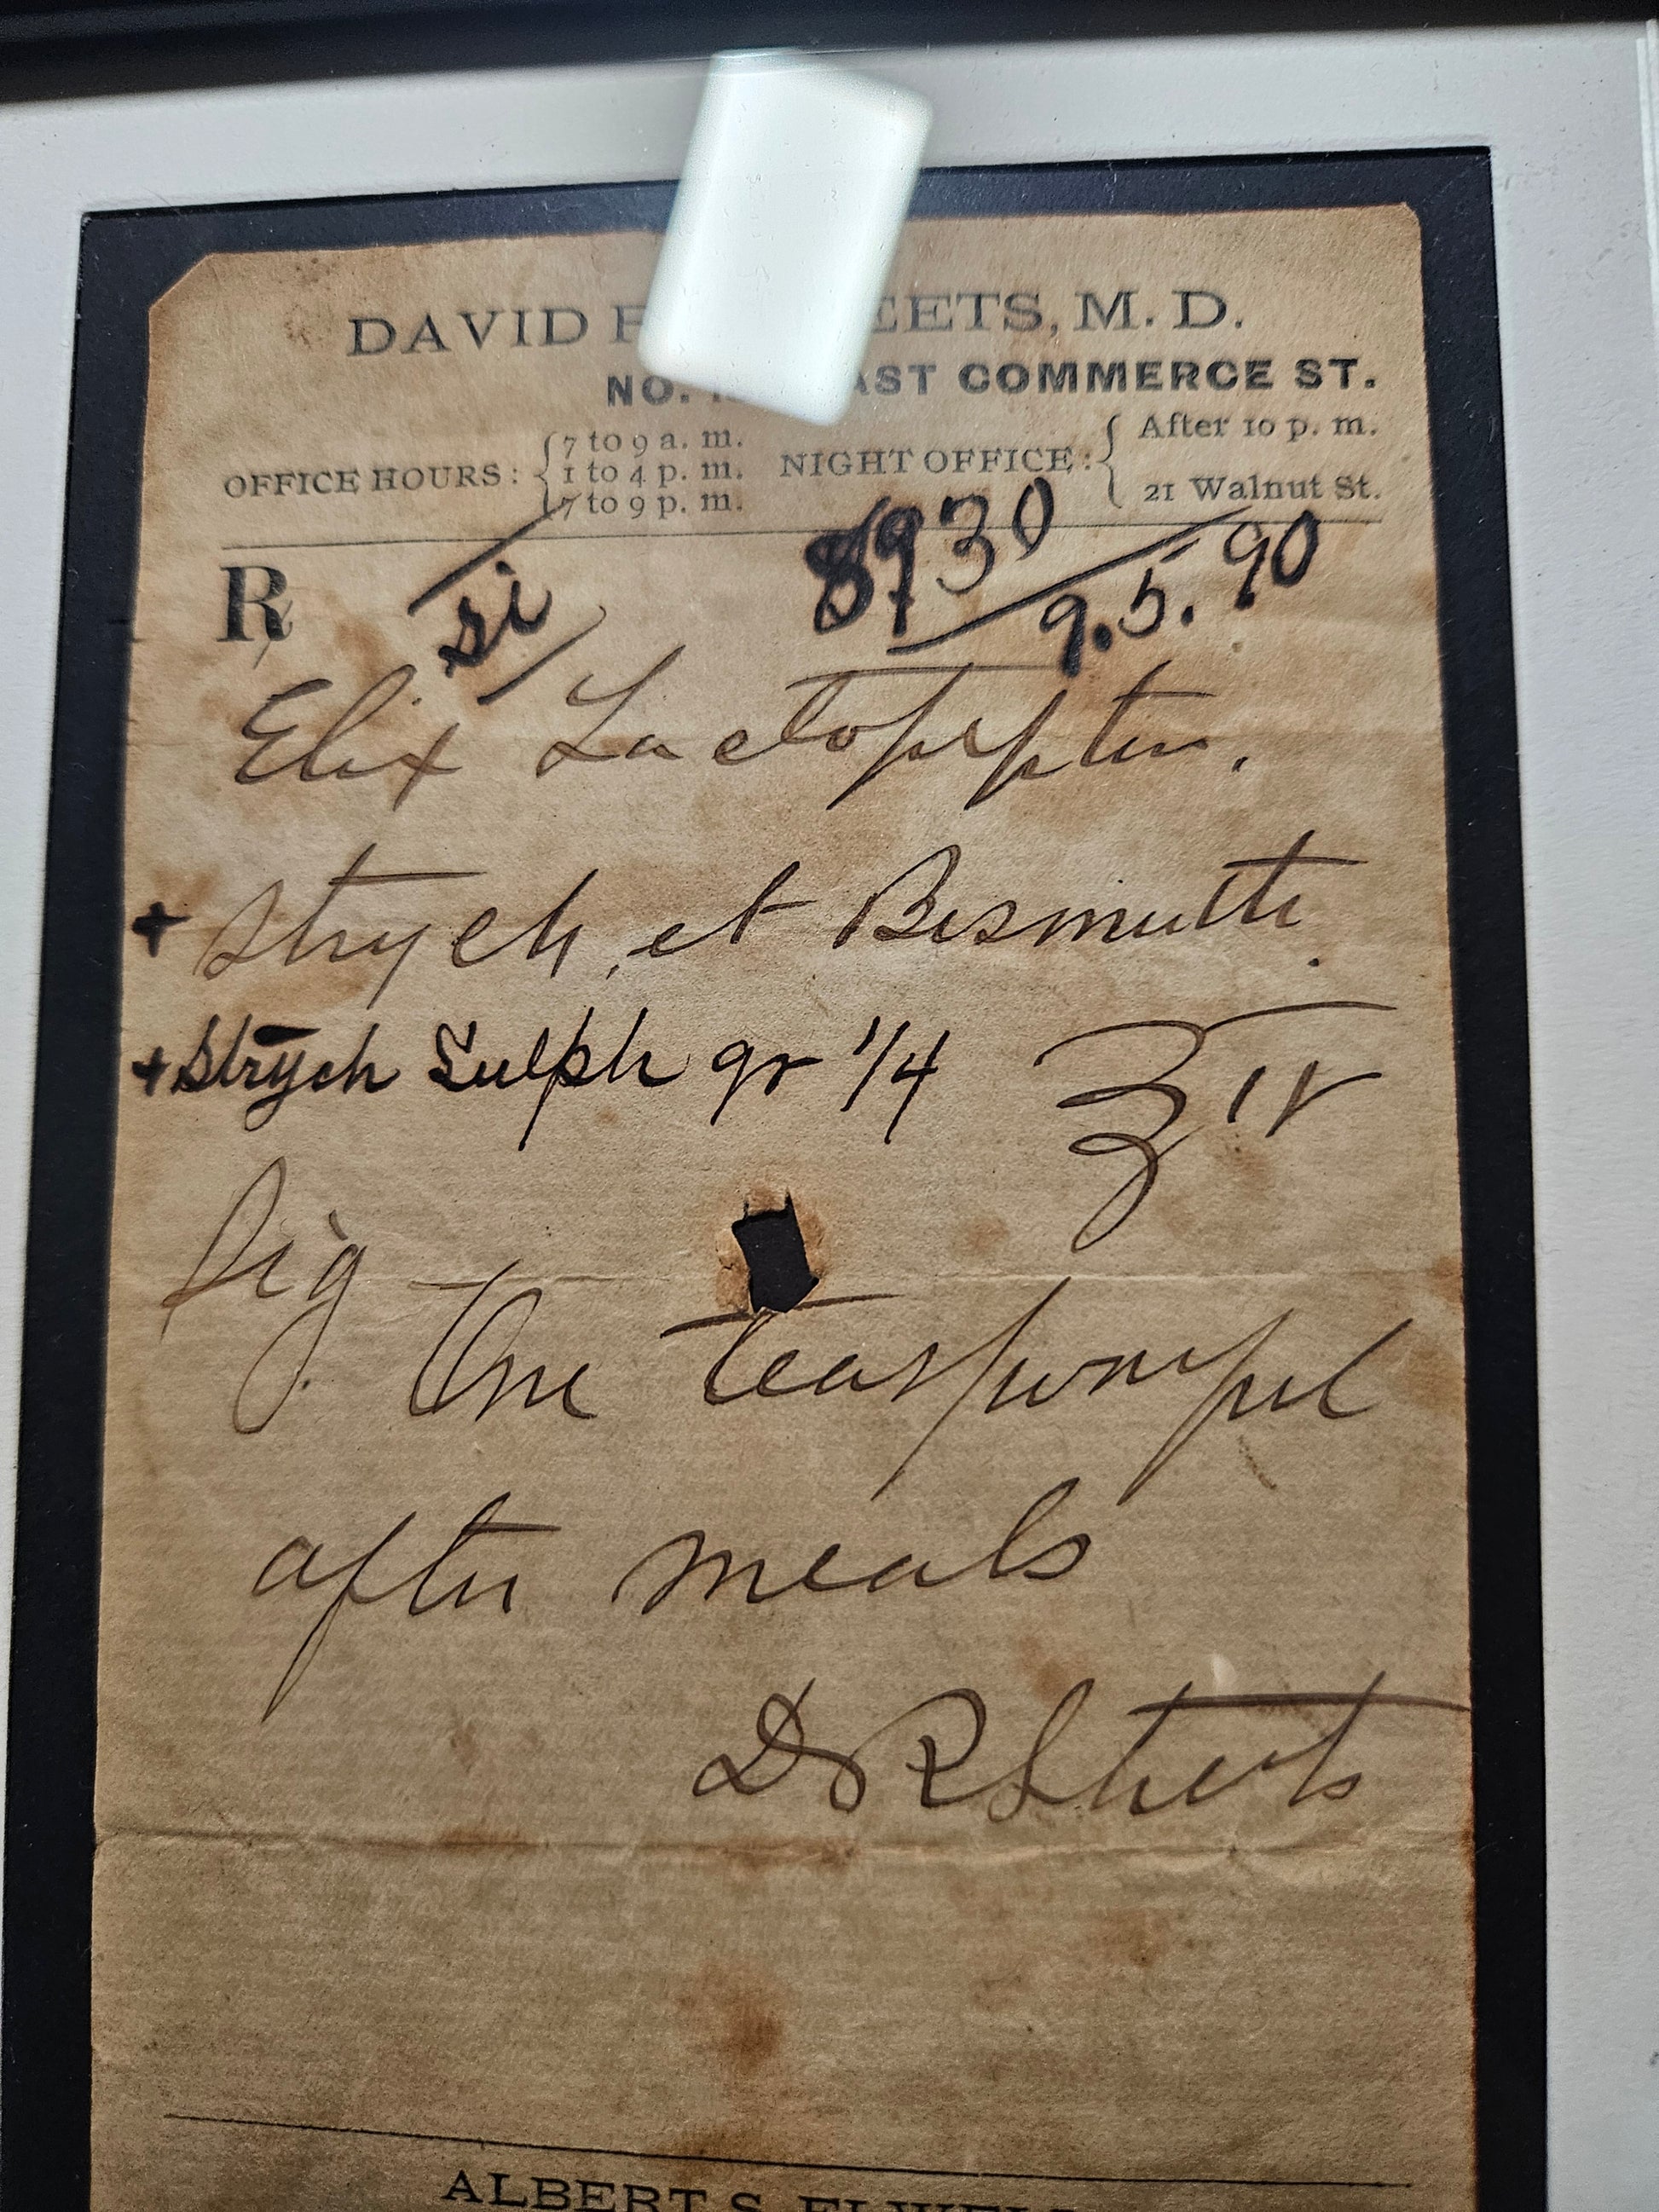 DAVID EETS, M. D.
NO. AST COMMERCE ST.
OFFICE HOURS: 7 to 9 a. m. 1 to 4 p. m. 7 to 9 p. m. NIGHT OFFICE: After 10 p. m. 21 Walnut St.
R si 8930 9.5.90
Elix Lactopeptin.
+ Strych. et Bismuthi.
+ Strych Sulph gr 1/4 ℥iv
Sig One teaspoonful
after meals
D R Streets
ALBERT S. ELWELL